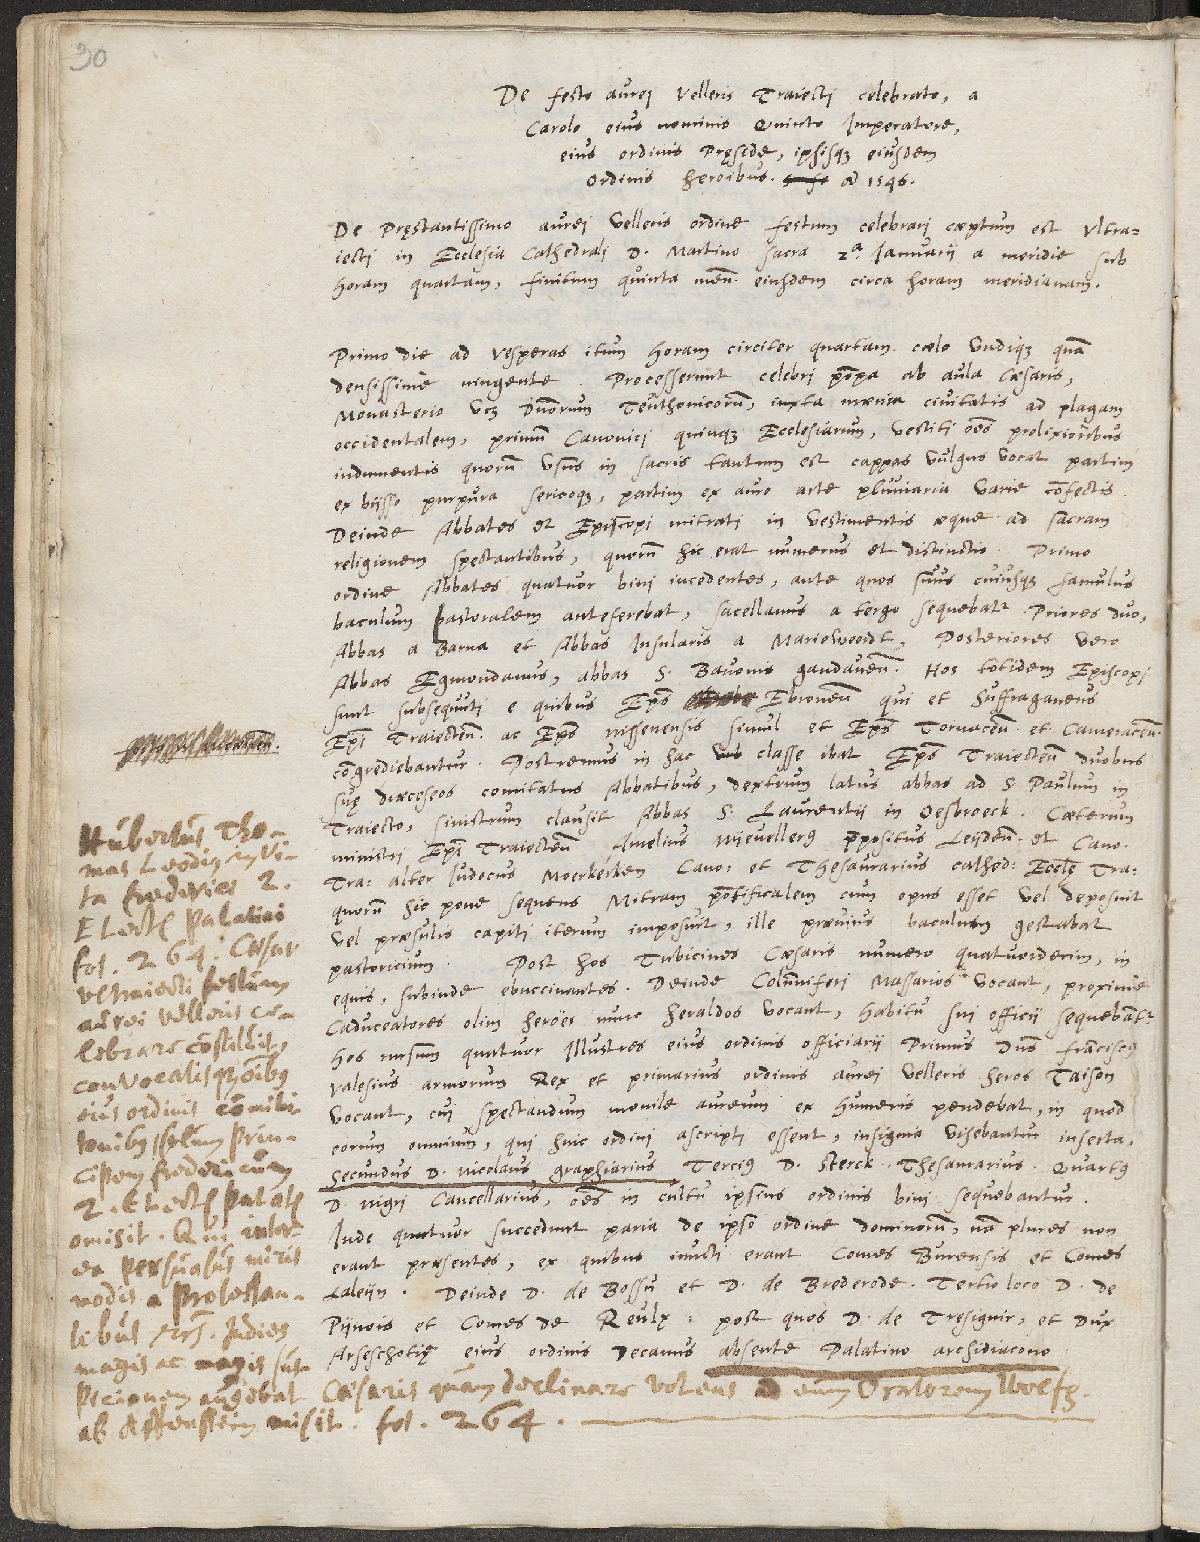 30
De festo aurej Velleris Traiecti celebrato, a
Carolo eius nominis Quinto Imperatore,
eius ordinis Pręside, ipsisq3 eiusdem
Ordinis heroibus. Aº 1546.
De Pręstantissimo aurej Velleris ordine festum celebrarj cœptum est Vltra-
iecti in Ecclesia Cathedralj D. Martino sacra 2ª Januarij a meridie sub
horam quartam, finitum quinta mens̄ eiusdem circa horam meridianam.
Primo die ad Vesperas itum horam circiter quartam cœlo Vndiq3 quā
densissime ningente. Processerunt celebrj pōpa ab aula Cæsaris,
Monasterio vc3 Dn̄orum Teuthonicorū, iuxta mœnia ciuitatis ad plagam
occidentalem, primū Canonicj quinq3 Ecclesiarum, Vestiti oēs prolixioribus
indumentis quorū vsus in sacris tantum est cappas vulgus vocat partim
ex bysso purpura sericoq3, partim ex auro arte pluuiaria varie cōfectis
Deinde Abbates et Episcopi mitrati in Vestimentis æque ad sacram
religionem spectantibus, quorū hic erat numerus et distinctio. Primo
ordine Abbates quatuor bini incedentes, ante quos suus cuiusq3 famulus
baculum pastoralem anteferebat, sacellanus a tergo sequebatr. Priores duo,
Abbas a Barna et Abbas Insularis a Marieweerdt, Posteriores Vero
Abbas Egmondanus, abbas S. Bauonis gandauen̄. Hos totidem Episcopi
sunt subsequuti e quibus Eps̄ Ebronen̄ qui et Suffraganeus
Epī Traiecten̄. ac Eps̄ nissenensis simul et Eps̄ Tornacen̄ et Cameracen̄
cōgrediebantur. Postremus in hac classe ibat Eps̄ Traiecten̄ duobus
suę diœceseos comitatus Abbatibus, dextrum latus abbas ad S Paulum in
Traiecto, sinistrum clausit Abbas S. Laurentij in Oesbroeck. Cæterum
ministrj Epī Traiecten̄ Amelius Mijeullers Ppositus Leijden̄. et Cano.
Tra: alter Judocus Moerkercken Cano: et Thesaurarius cathed: Eccle Tra:
quorū hic pone sequens Mitram pōtificalem cum opus esset vel deposuit
vel præsulis capiti iterum imposuit, ille præuius baculum gestabat
pastoricium. Post hos Tubicines Cæsaris numero quatuordecim, in
equis, subinde ebuccinantes. Deinde Colūniferi Massarios vocant, proxime
Caduceatores olim heröes nunc heraldos vocant, habitu sui officij sequebātr
hos rursum quatuor Illustres eius ordinis officiarij Primus Dn̄s franciscus
valesius armorum Rex et primarius ordinis aurej Velleris heros Taison
vocant, cui spectandum monile aureum ex humeris pendebat, in quod
eorum omnium, qui huic ordinj ascripti essent, insignia visebantur inserta,
secundus D. nicolaus graphiarius Tercius D. sterck. Thesaurarius. Quartus
D nigri Cancellarius, oēs in cultu ipsius ordinis bini sequebantur.
Inde quatuor succedunt paria de ipso ordine dominorū, nā plures non
erant præsentes, ex quibus iuncti erant Comes Burensis et Comes
Laleijn. Deinde D. de Bossu et D. de Brederode. Tertio loco D. de
Pijnois et Comes de Reulx: post quos D. de Tresignir, et Dux
Arseschotię eius ordinis Decanus absente Palatino archidiacono
Hubertus Tho-
mas Leodiq in vi-
ta frederici 2.
Elect Palatini
fol. 264. Cæsar
vltraiecti festum
aurei velleris ce-
lebrare cōstituit,
convocatisq3 oībus
eius ordinis comili-
tonibus, solum prin-
cipem fredericum
2. Elect Palat
omisit. Qui inter-
ea persuasus miris
modis a protestan-
tibus indies
magis ac magis sus-
picionem augebat Cæsaris quam declinare volens ad eum Oratorem Wolfg.
ab Affenstein misit. fol. 264.